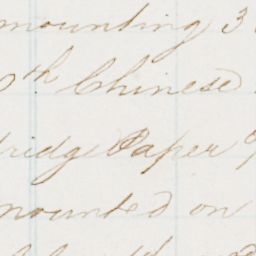 mounting 3
th Chinese
ridge Paper
mounted on